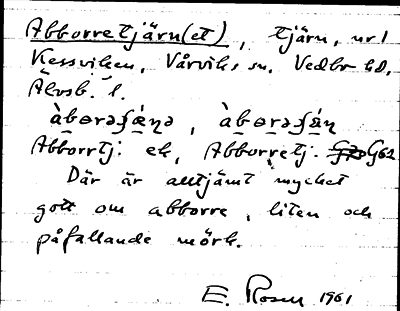 Abborretjärn(et), tjärn, nr 1
Kessviken, Vårviks sn. Vedbo hd,
Älvsb. l.
àbɵrəʃæ̀ṇə, àbɵrəʃæ̀ṇ
Abborrtj. ek, Abborretj. G62
Där är alltjämt mycket
gott om abborre, liten och
påfallande mörk.
E. Rosen 1961